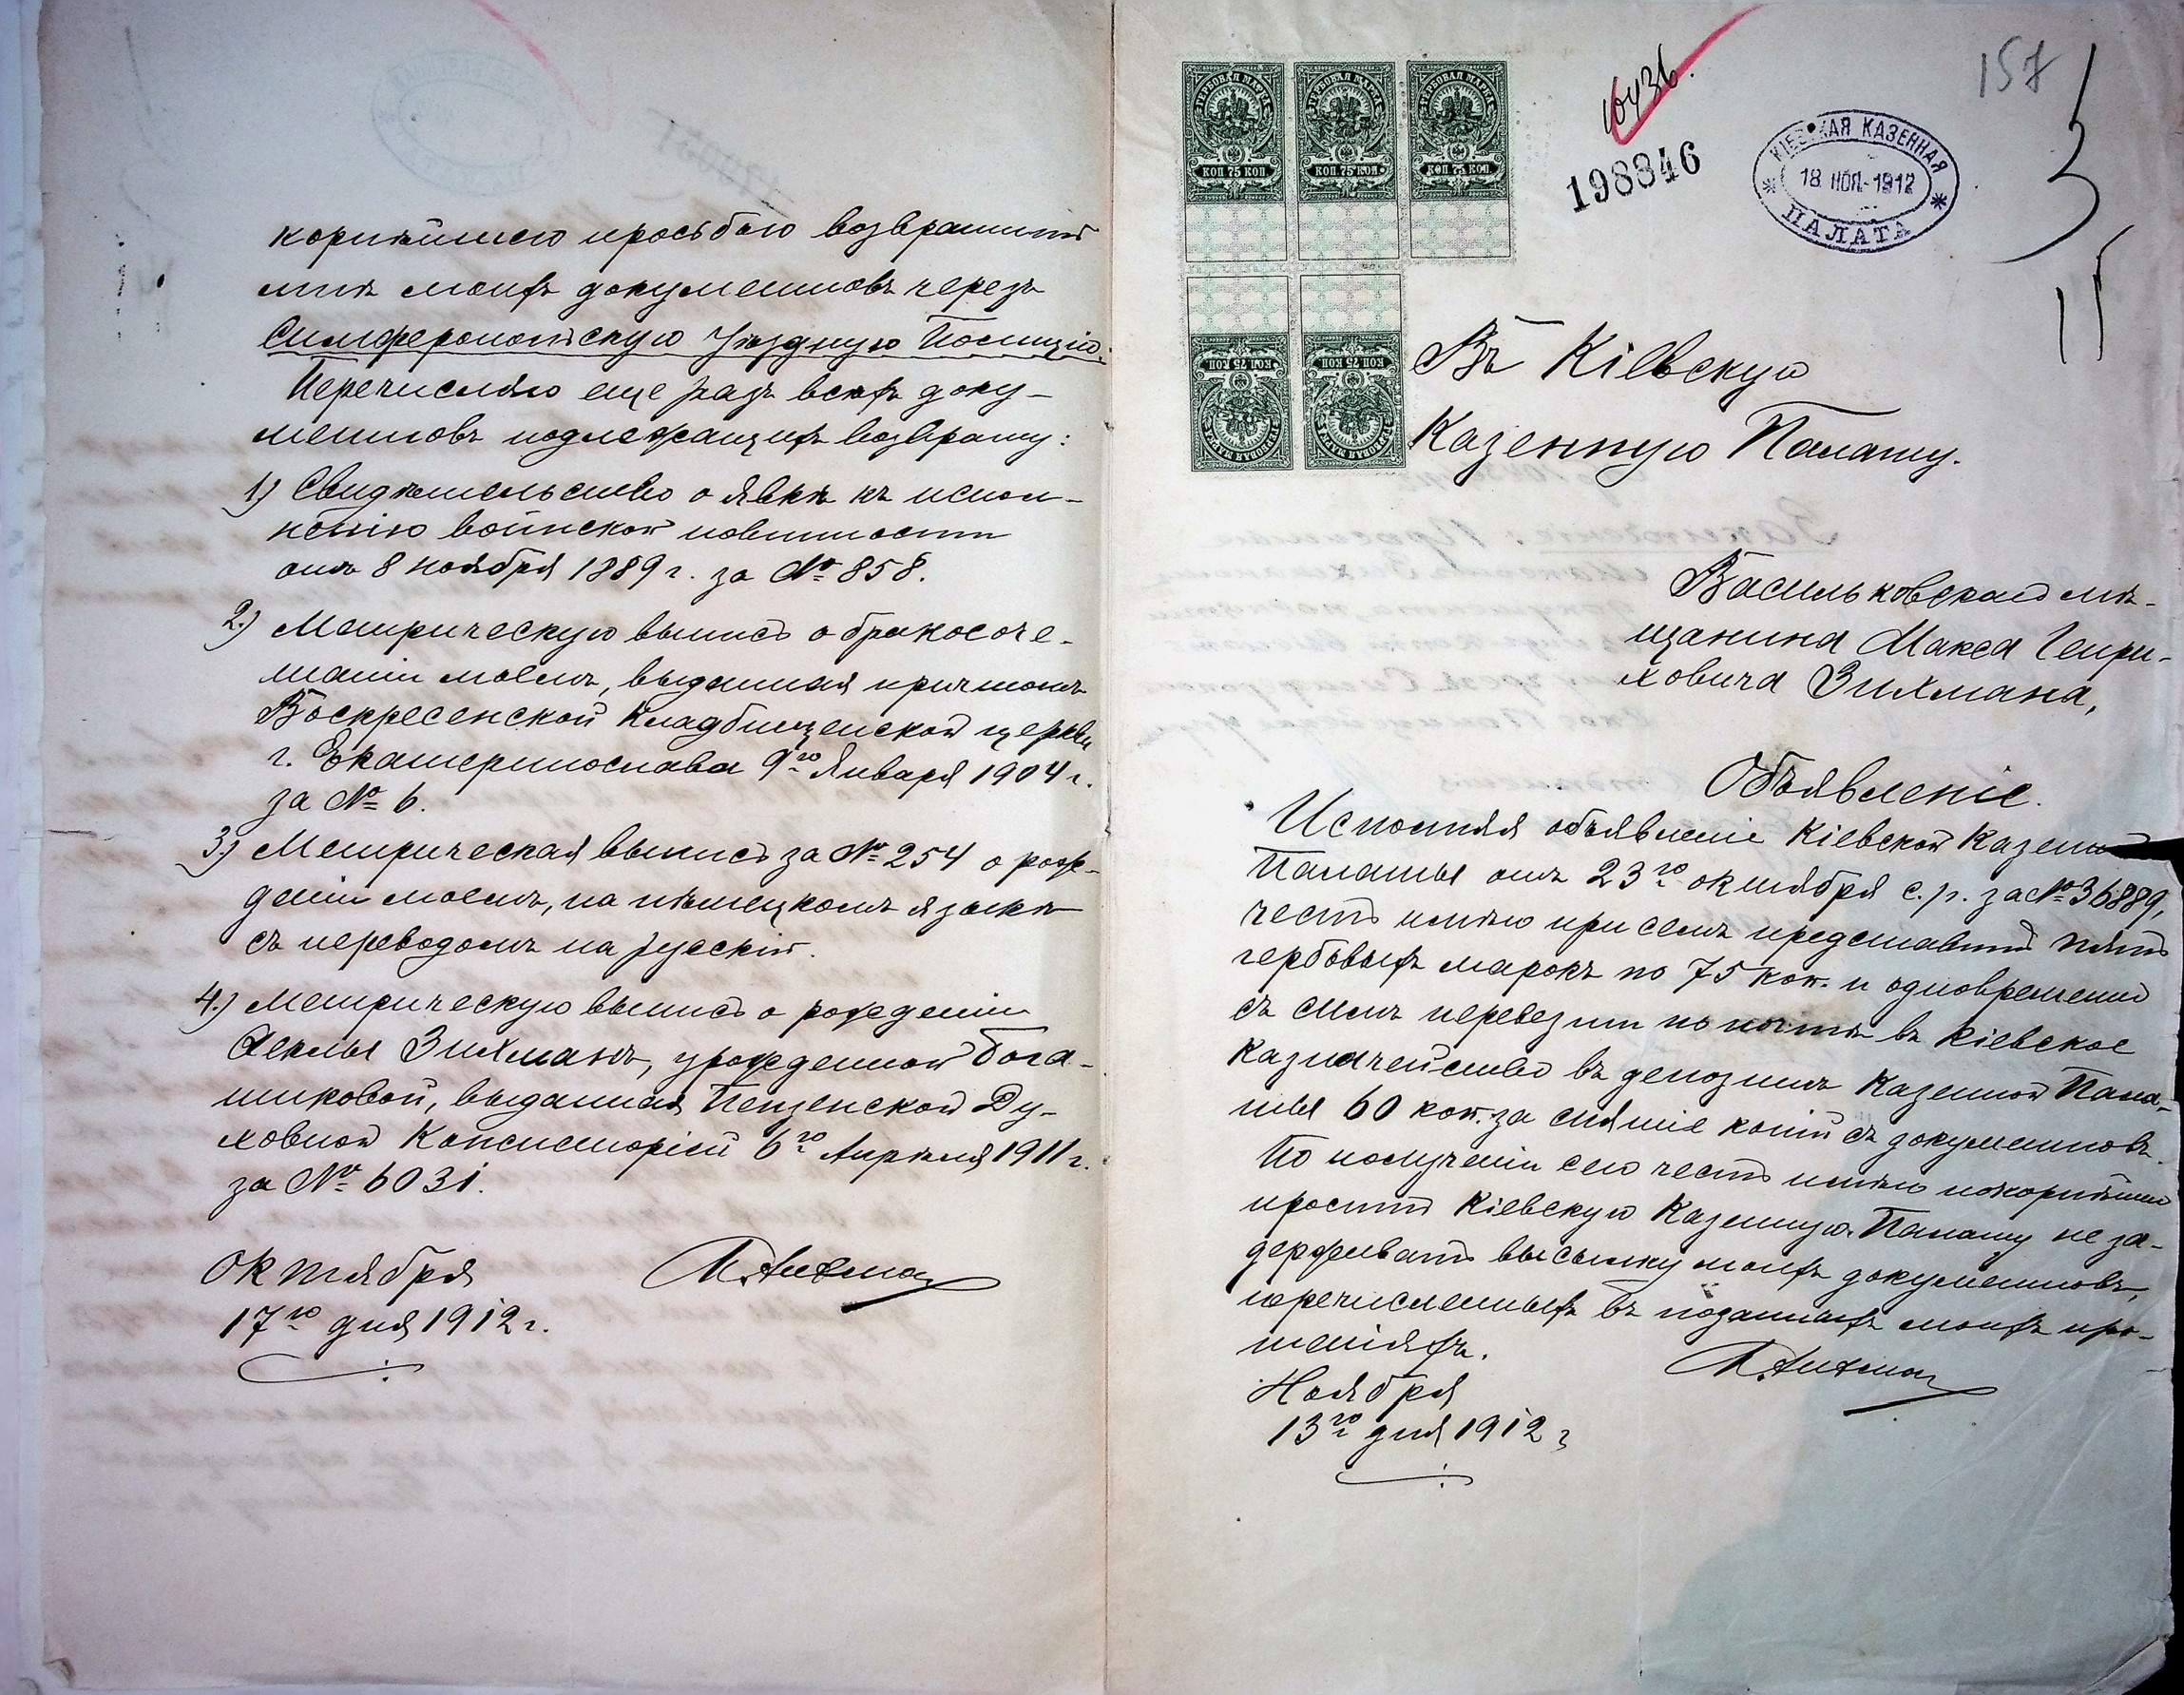 корнѣйшею просьбою возвратить
мнѣ моихъ документовъ черезъ
Симферопольскую Уѣздную Полицію.
Перечисляю еще разъ всѣхъ доку-
ментовъ подлежащихъ возврату:
1) Свидѣтельство о явкѣ къ испол-
ненію воинской повинности
отъ 8 ноября 1889 г. за № 858.
2.) Метрическую выпись о бракосоче-
таніи моемъ, выданная причтомъ
Воскресенской Кладбищенской церкви
г. Екатеринослава 9го Января 1904 г.
за № 6.
3.) Метрическая выпись за № 254 о рож-
деніи моемъ, на нѣмецкомъ языкѣ
съ переводомъ на русскій.
4.) Метрическую выпись о рожденіи
Феклы Зихманъ, урожденной Бога-
тиковой, выданная Пензенской Ду-
ховной Консисторіей 6го Апрѣля 1911 г.
за № 6031.
Октября
17го дня 1912 г.
М. Зихман
157
16436.
198846
КІЕВСКАЯ КАЗЕННАЯ
18 НОЯ. 1912
ПАЛАТА
ГЕРБОВАЯ МАРКА
КОП 75 КОП
ГЕРБОВАЯ МАРКА
КОП 75 КОП
ГЕРБОВАЯ МАРКА
КОП 75 КОП
ГЕРБОВАЯ МАРКА
КОП 75 КОП
ГЕРБОВАЯ МАРКА
КОП 75 КОП
Въ Кіевскую
Казенную Палату.
Васильковскаго мѣ-
щанина Макса Генри-
ховича Зихмана,
Объявленіе.
Исполняя объявленіе Кіевской Казенной
Палаты отъ 23го октября с. г. за № 36889,
честь имѣю при семъ представить пять
гербовыхъ марокъ по 75 коп. и одновременно
съ симъ перевезти по почтѣ въ Кіевское
Казначейство въ депозитъ Казенной Пала-
ты 60 коп. за снятіе копій съ документовъ.
По полученіи сего честь имѣю покорнѣйше
просить Кіевскую Казенную Палату не за-
держивать высылку моихъ документовъ,
перечисленныхъ въ поданныхъ моихъ про-
шеніяхъ.
Ноября
13го дня 1912 г
М. Зихман